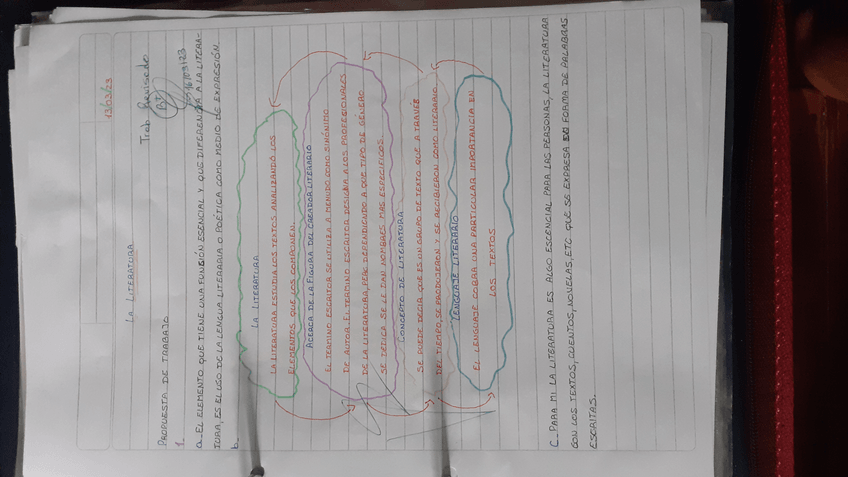 13/03/23
LA LITERATURA
Trab. Revisado
16/03/23
PROPUESTA DE TRABAJO
1_
a_ EL ELEMENTO QUE TIENE UNA FUNSIÓN ESENCIAL Y QUE DIFERENCIA A LA LITERA-
TURA, ES EL USO DE LA LENGUA LITERARIA O POÉTICA COMO MEDIO DE EXPRESIÓN.
b_
LA LITERATURA
LA LITERATURA ESTUDIA LOS TEXTOS ANALIZANDO LOS
ELEMENTOS QUE LOS COMPONEN.
ACERCA DE LA FIGURA DEL CREADOR LITERARIO
EL TERMINO ESCRITOR SE UTILIZA A MENUDO COMO SINÓNIMO
DE AUTOR. EL TERMINO ESCRITOR DESIGNA A LOS PROFESIONALES
DE LA LITERATURA, PERO DEPENDIENDO A QUE TIPO DE GÉNERO
SE DEDICA SE LE DAN NOMBRES MAS ESPECIFICOS.
CONCEPTO DE LITERATURA
SE PUEDE DECIR QUE ES UN GRUPO DE TEXTO QUE A TRAVÉS
DEL TIEMPO, SE PRODUJERON Y SE RECIBIERON COMO LITERARIO.
LENGUAJE LITERARIO
EL LENGUAJE COBRA UNA PARTICULAR IMPORTANCIA EN
LOS TEXTOS
C_ PARA MI LA LITERATURA ES ALGO ESCENCIAL PARA LAS PERSONAS, LA LITERATURA
SON LOS TEXTOS, CUENTOS, NOVELAS, ETC QUE SE EXPRESA EN FORMA DE PALABRAS
ESCRITAS.